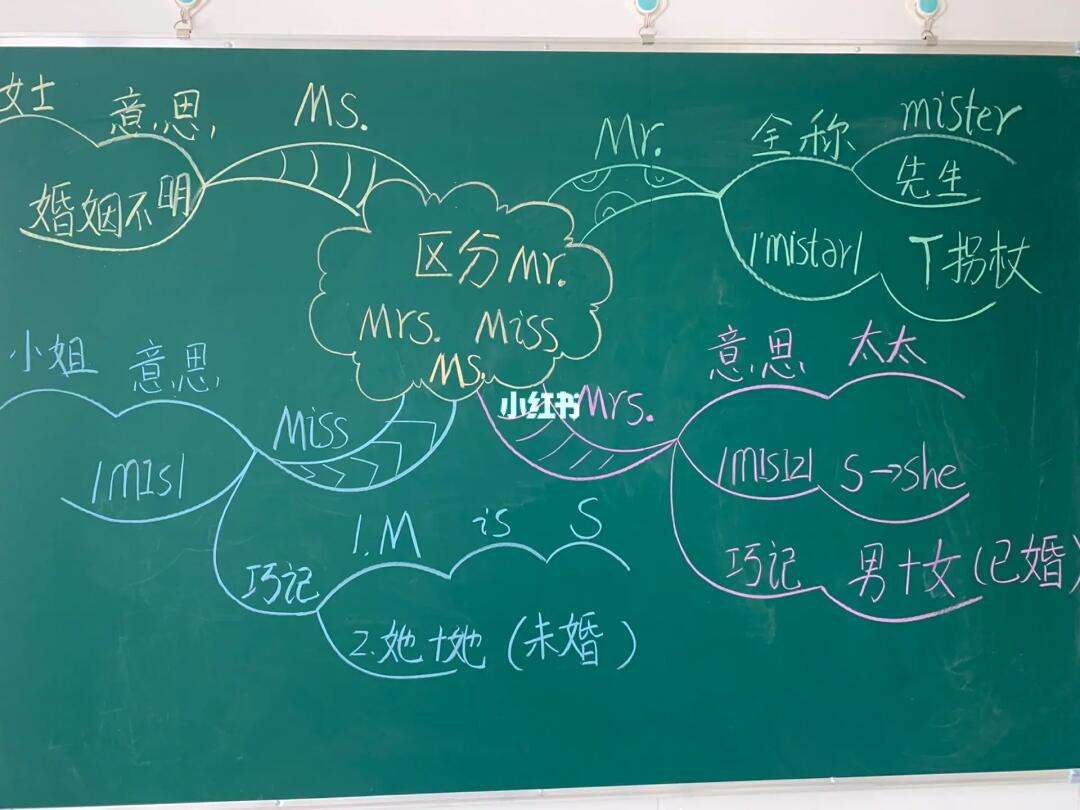 区分 Mr.
Mrs. Miss
Ms.
Ms.
意思
女士
婚姻不明
Mr.
全称
mister
先生
/'mistər/
T拐杖
Miss
意思
小姐
/mIs/
巧记
1.M is S
2.她+她(未婚)
Mrs.
意思
太太
/mIsIz/
S→she
巧记
男+女(已婚)
小红书